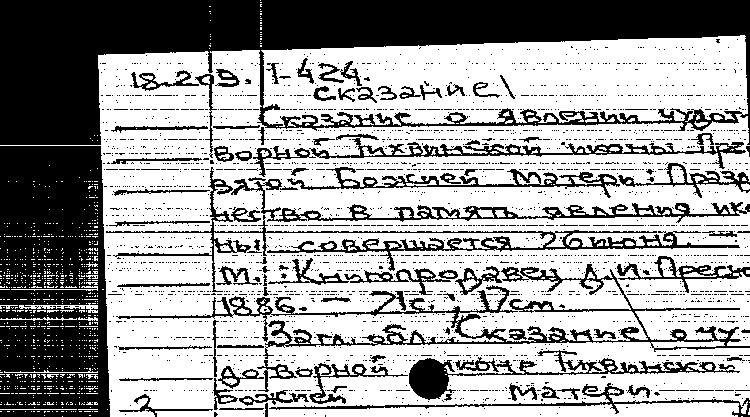 18.209. I-424.
сказание\
Сказание о явлении чудот-
ворной Тихвинской иконы Прес
вятой Божией Матери: Празд
нество в память явления ико
ны совершается 26 июня. —
М.: Книгопродавец Д. И. Пресно
1886. — 71с.; 17см.
Загл. обл.: Сказание о чу-
дотворной иконе Тихвинской
Божией Матери.